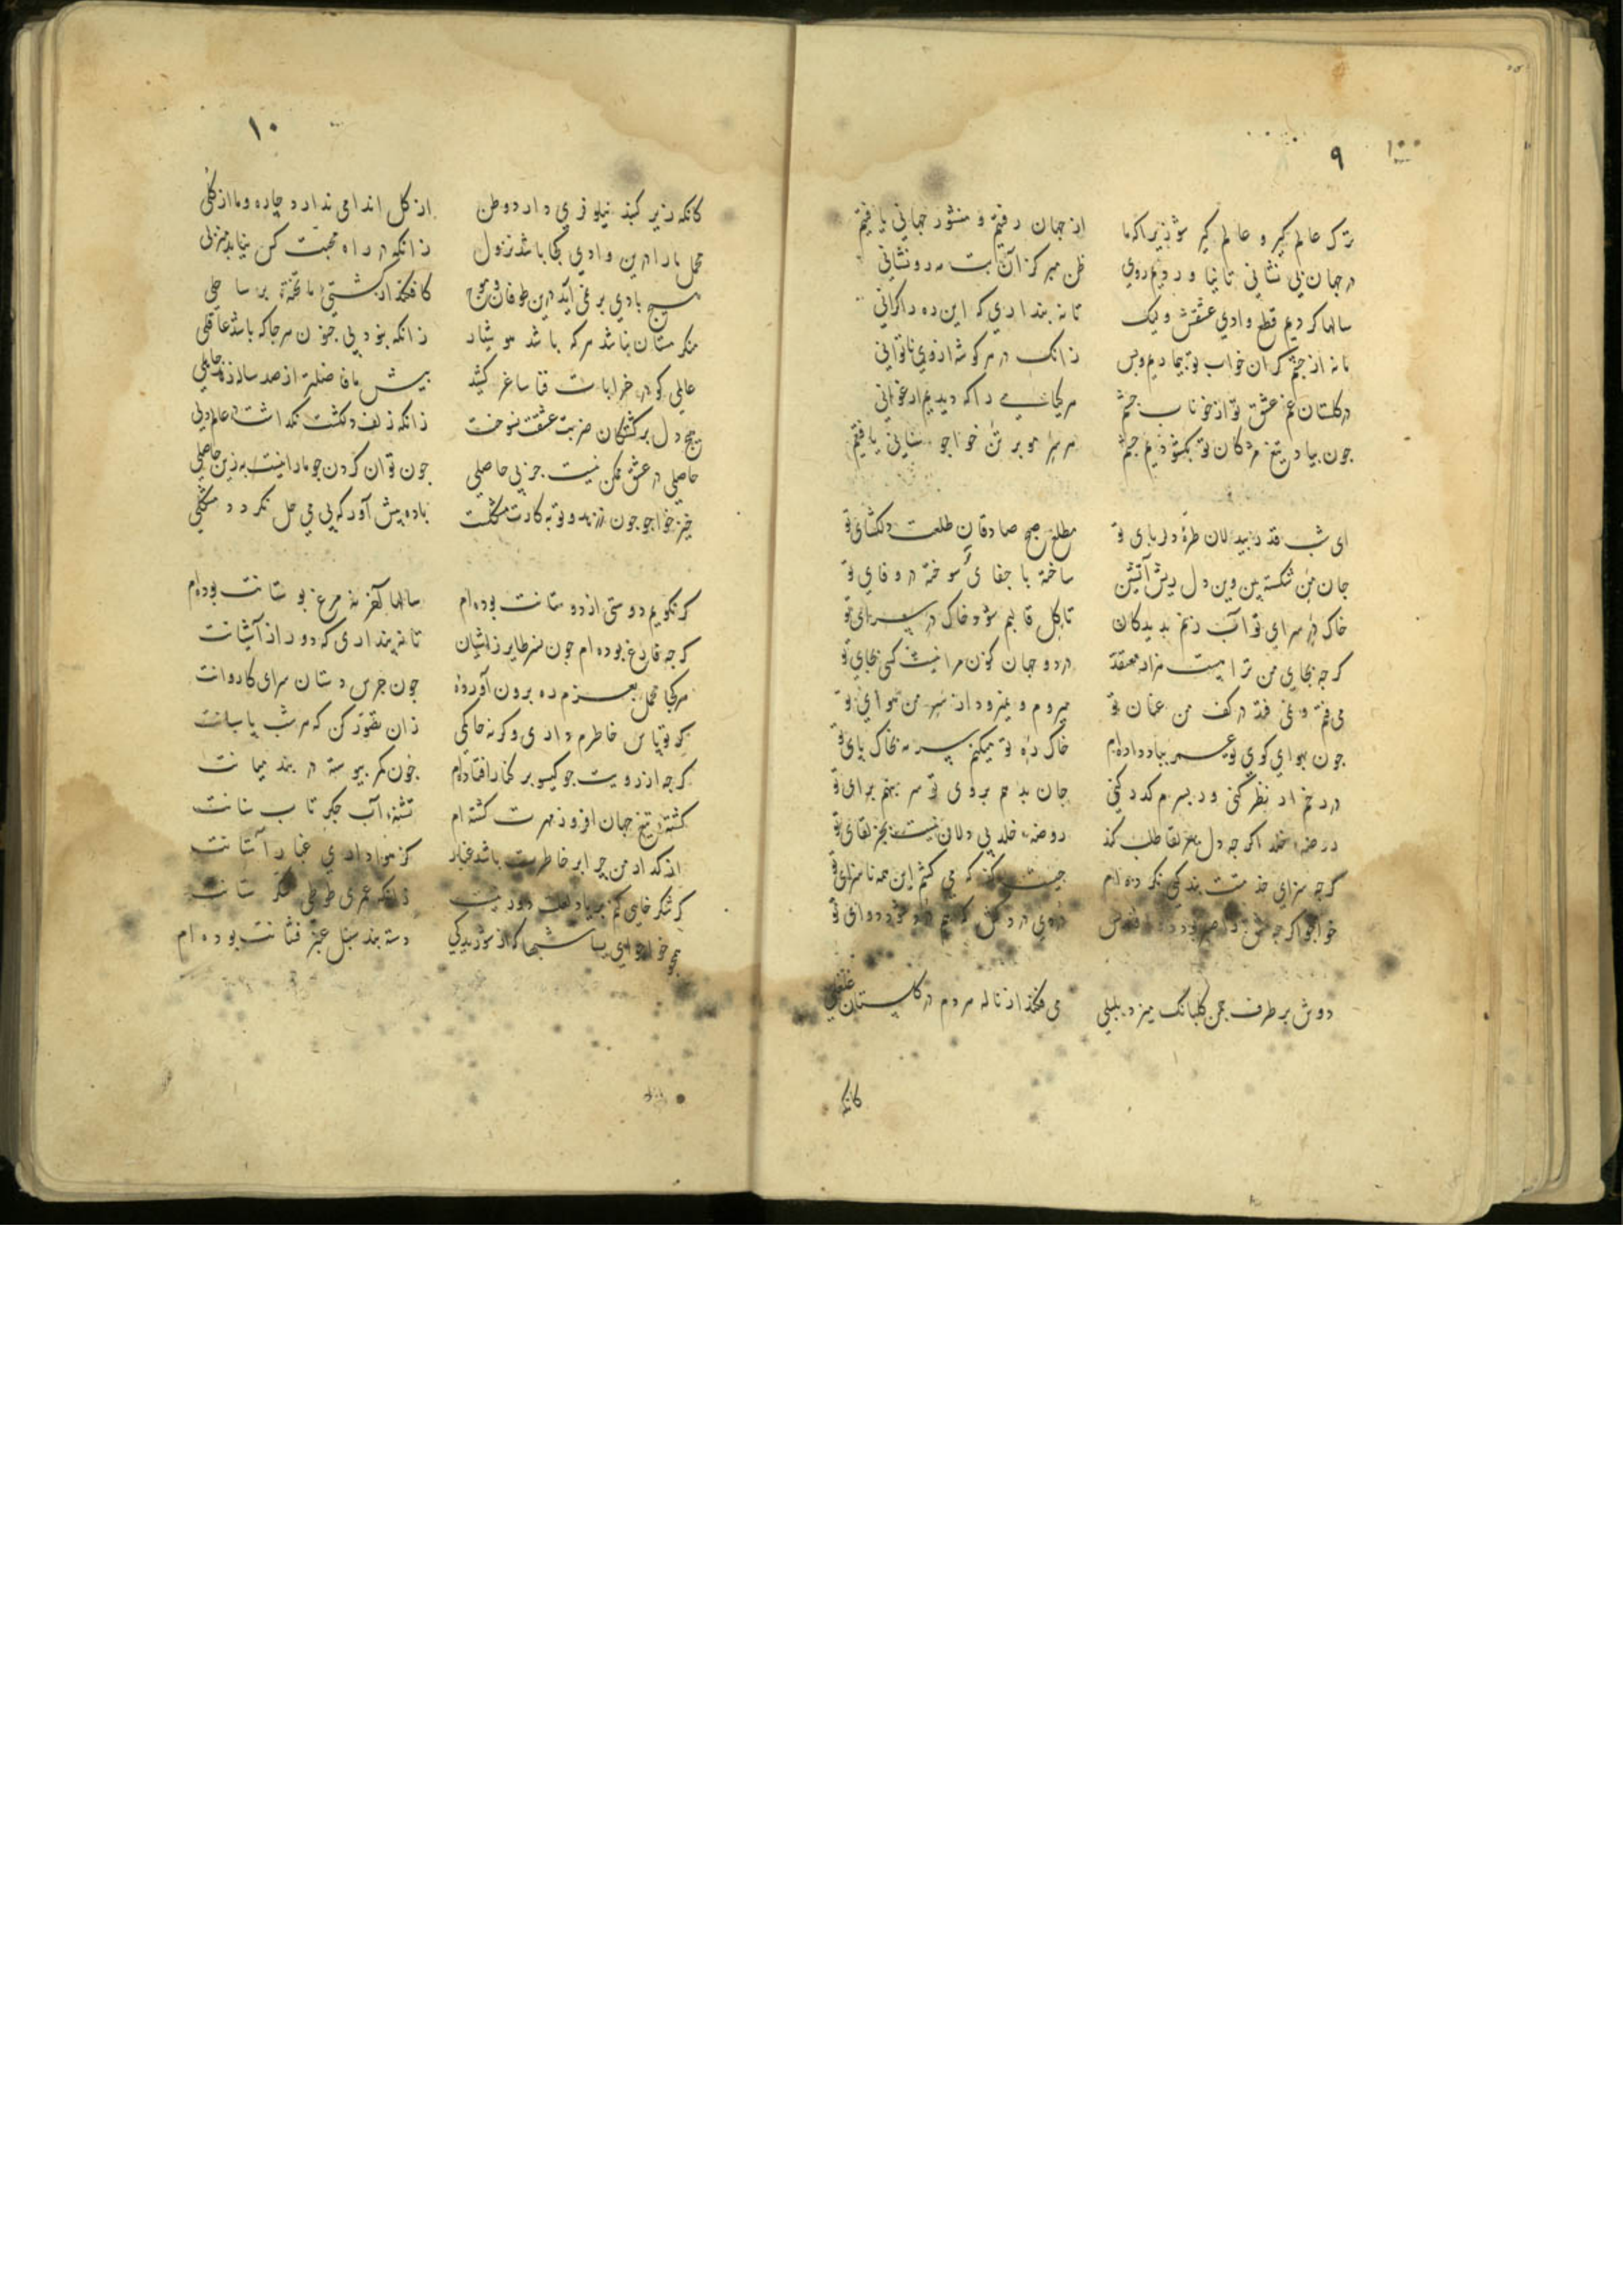 ۹
ترک عالم گیر و عالم گیر شو زیرا که ما از جهان رفتیم و منشور جهانی یافتیم
در جهان بی نشانی تا نیاوردیم روی ظن مبر کز آن بت مه رو نشانی
سالها کردیم قطع وادی عشقش ولیک تا نه پنداری که این ره را کرانی
ما نه از چشم گران خواب تو بیماریم و بس زانک در هر گوشه از وی ناتوانی
در گلستان غم عشق تو از خوناب چشم هر گیاهی را که دیدیم ارغوانی
چون بیاد تیغ مژگان تو بگشودیم چشم هر سر مو بر تن خواجو سنانی یافتیم
ای شب قدر بیدلان طره دلربای تو مطلع صبح صادقان طلعت دلگشای تو
جان من شکسته بین وین دل ریش آتشین ساخته با جفای تو سوخته در وفای تو
خاک در سرای تو آب زنم بدیدگان تا گل قالبم شود خاک در سرای تو
گرچه بجای من ترا هست هزار معتقد در دو جهان کون مرا نیست کسی بجای تو
می فتم و نمی فتد در کف من عنان تو میروم و نمیرود از سر من هوای تو
چون بهوای کوی تو عمر بباد داده ام خاک ره تو میکنم سر نه بخاک پای تو
در رخم ار نظر کنی ور بسرم گذر کنی جان بدهم بروی تو سر بنهم برای تو
در روضه خلد اگرچه دل بهر لقا طلب کند روضه خلد بی دلان نیست بجز لقای تو
گرچه سزای خدمتت بندگی نکرده ام چیست که می کشم این همه ناسزای تو
خواجو اگرچه
دوش بر طرف چمن گلبانک میزد بلبلی می فکند از ناله هر دم در گلستان غلغلی
کانکه
۱۰
کانکه زیر گنبد نیلوفری دارد وطن از گل اندامی ندارد چاره و ما از گلی
محمل یار اندرین وادی کجا باشد نزول زانکه در راه محبت کس نیابد منزلی
هیچ بادی بر نمی آید درین طوفان موج کافکند از کشتی ما تخته بر ساحلی
منکر مستان نباشد هر که باشد هوشیار زانکه نبود بی جنون هر جا که باشد عاقلی
عالمی کو در خرابات فنا ساغر کشد پیش ما فاضلتر از صد ساله زهد جاهلی
هیچ دل بر کشتگان ضربت عشقت نسوخت زانکه زلف دلکشت نگذاشت در عالم دلی
حاصلی در عشق ممکن نیست جز بی حاصلی چون توان کردن چو ما را نیست به زین حاصلی
خیز خواجو چون ز زهد و توبه کارت مشکلست باده پیش آور که بی می حل نگردد مشکلی
گر نگویم دوستی از دوستانت بوده ام سالها آخر نه مرغ بوستانت بوده ام
گرچه فارغ بوده ام چون نسر طایر ز آشیان تا نه پنداری که دور از آشیانت
هر کجا محمل بعزم ره برون آورده چون جرس دستان سرای کاروانت
گر تو پاس خاطرم داری وگر نه حاکمی زان تصور کن که هر شب پاسبانت
گرچه از رویت چو گیسو بر کنار افتاده ام چون کمر پیوسته در بند میانت
کشته تیغ جهان افروز مهرت گشته ام تشنه آب جگر تاب سنانت
از گدا من چرا بر خاطرت باشد غبار کز هواداری غبار آستانت
گر شکر خایی کنم بر یاد لعلت دور نیست زانکه عمری طوطی شکر ستانت
همچو خواجو ای بسا شبها که از شوریدگی دسته بند سنبل عنبر فشانت بوده ام